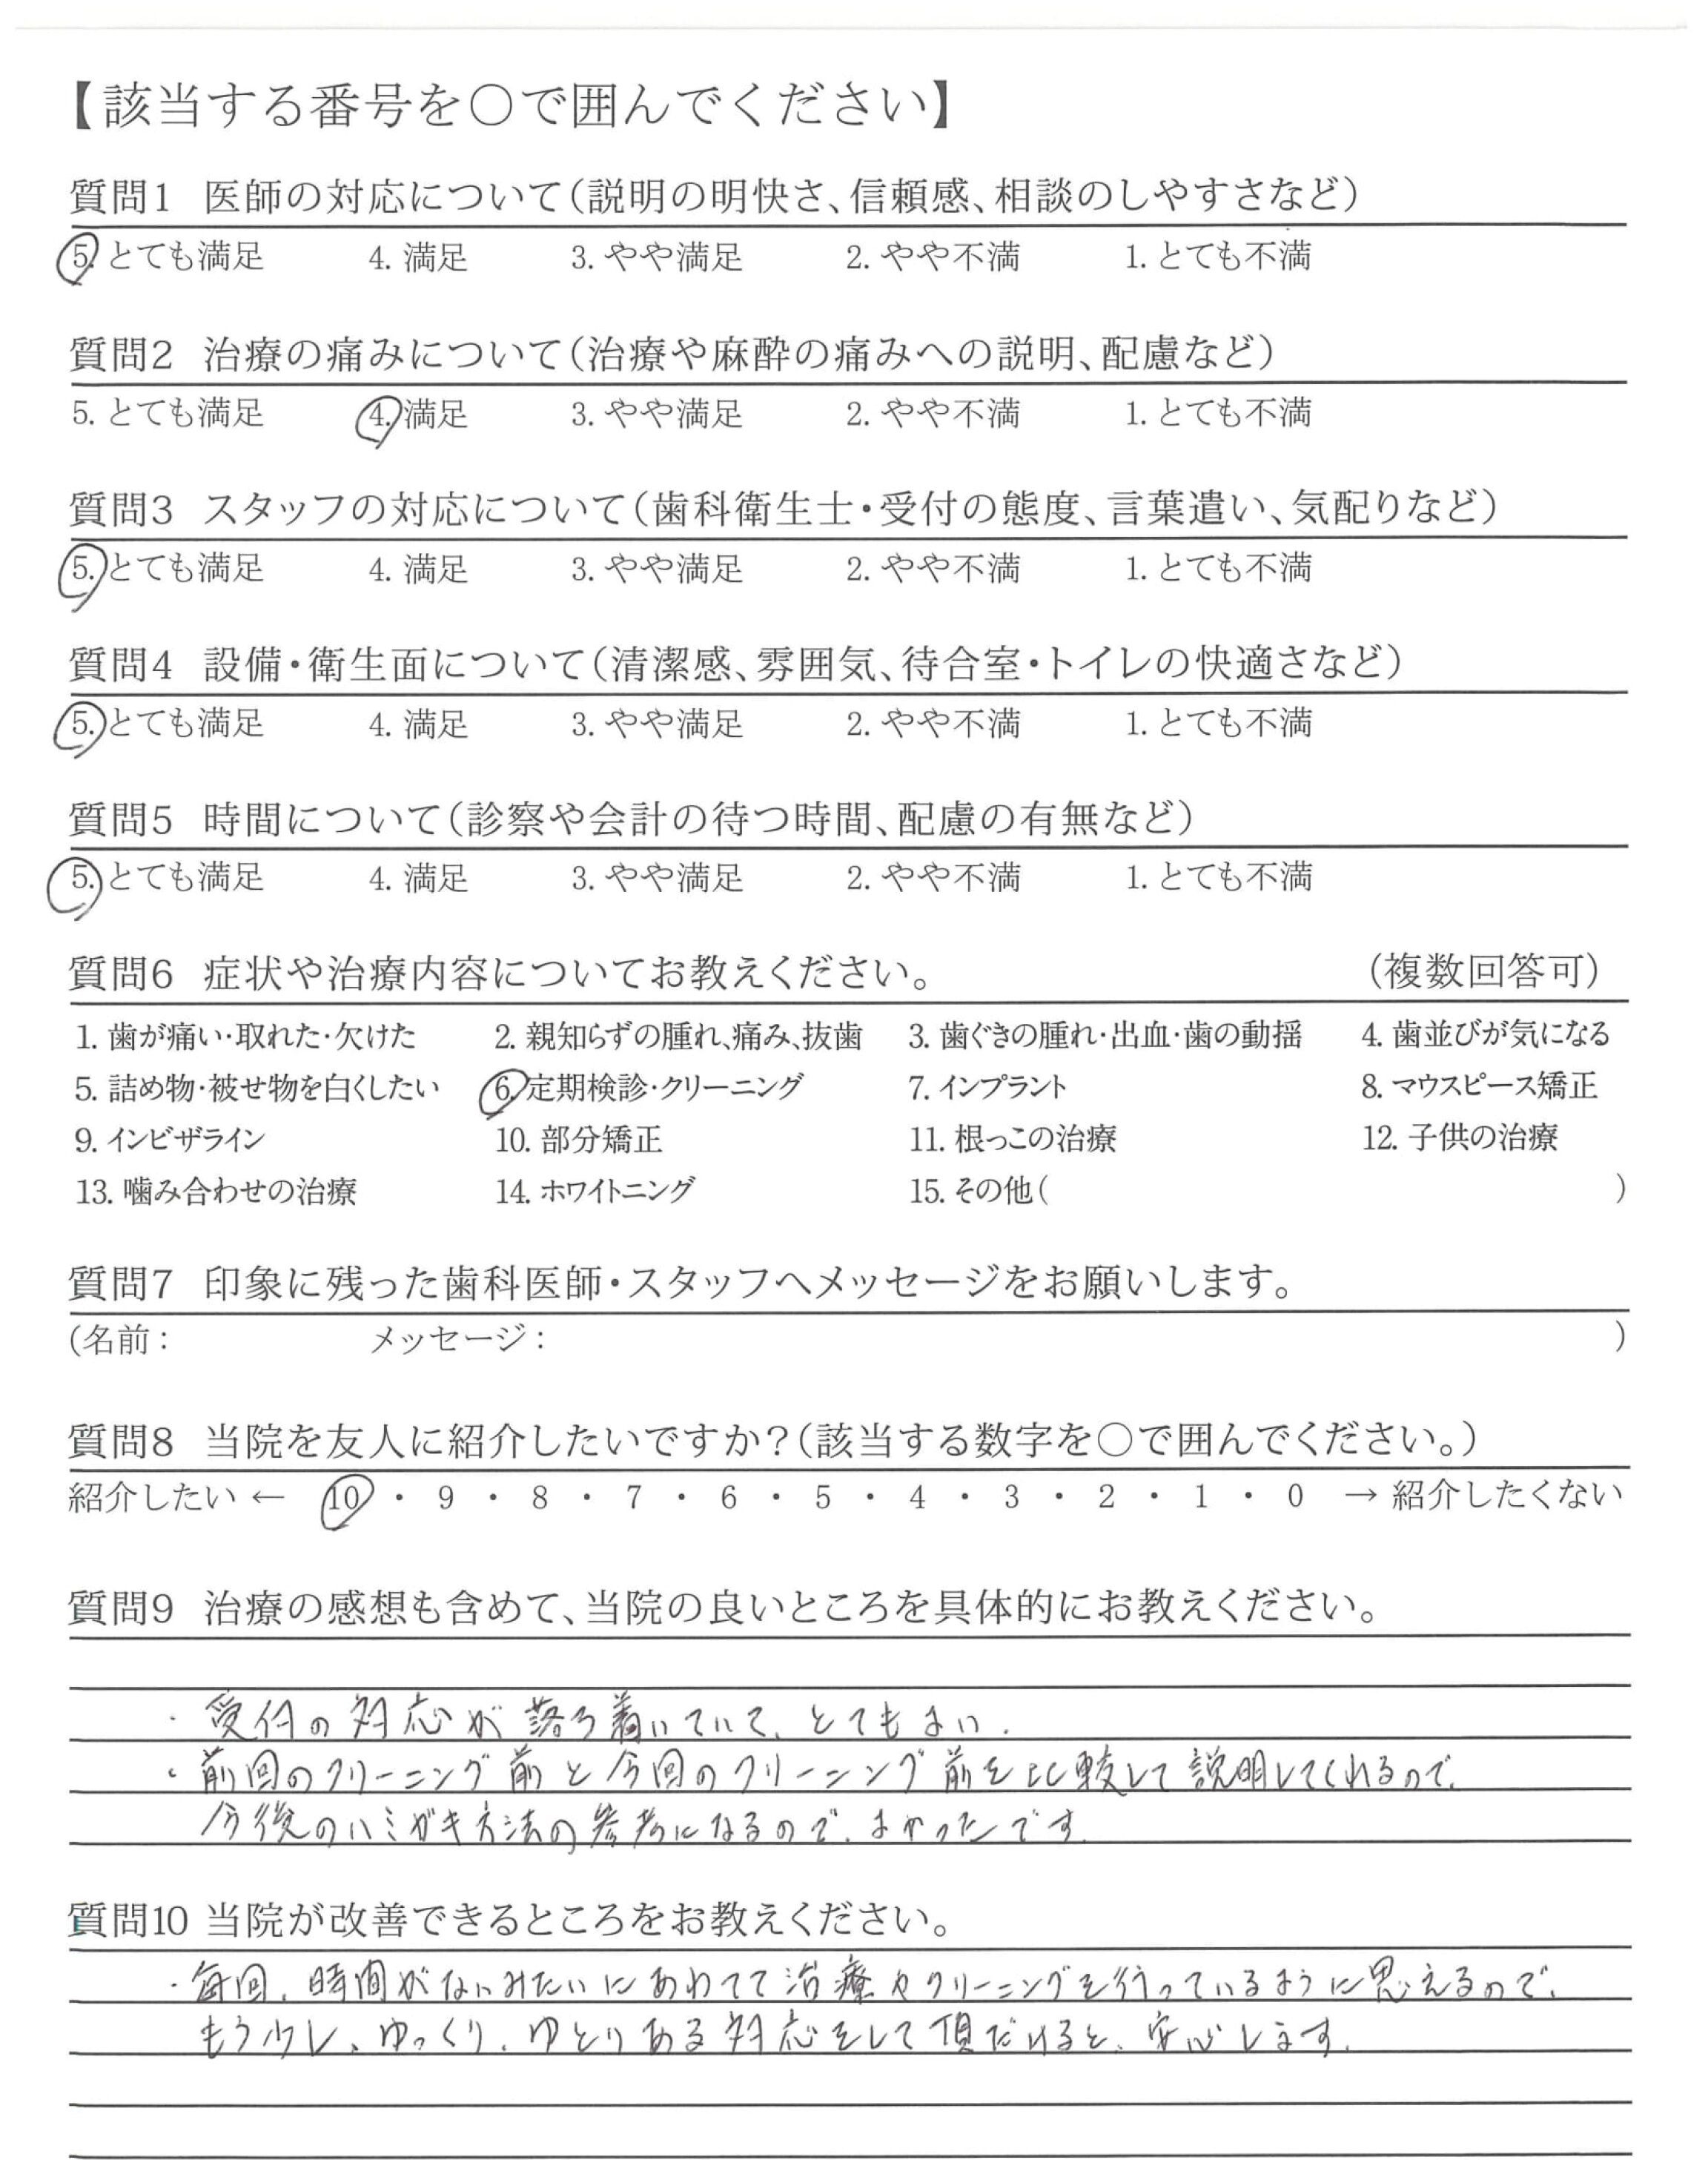 【該当する番号を○で囲んでください】
質問1 医師の対応について(説明の明快さ、信頼感、相談のしやすさなど)
5. とても満足 4. 満足 3. やや満足 2. やや不満 1. とても不満
質問2 治療の痛みについて(治療や麻酔の痛みへの説明、配慮など)
5. とても満足 4. 満足 3. やや満足 2. やや不満 1. とても不満
質問3 スタッフの対応について(歯科衛生士・受付の態度、言葉遣い、気配りなど)
5. とても満足 4. 満足 3. やや満足 2. やや不満 1. とても不満
質問4 設備・衛生面について(清潔感、雰囲気、待合室・トイレの快適さなど)
5. とても満足 4. 満足 3. やや満足 2. やや不満 1. とても不満
質問5 時間について(診察や会計の待つ時間、配慮の有無など)
5. とても満足 4. 満足 3. やや満足 2. やや不満 1. とても不満
質問6 症状や治療内容についてお教えください。 (複数回答可)
1. 歯が痛い・取れた・欠けた 2. 親知らずの腫れ、痛み、抜歯 3. 歯ぐきの腫れ・出血・歯の動揺 4. 歯並びが気になる
5. 詰め物・被せ物を白くしたい 6. 定期検診・クリーニング 7. インプラント 8. マウスピース矯正
9. インビザライン 10. 部分矯正 11. 根っこの治療 12. 子供の治療
13. 噛み合わせの治療 14. ホワイトニング 15. その他( )
質問7 印象に残った歯科医師・スタッフへメッセージをお願いします。
(名前: メッセージ: )
質問8 当院を友人に紹介したいですか?(該当する数字を○で囲んでください。)
紹介したい ← 10 ・ 9 ・ 8 ・ 7 ・ 6 ・ 5 ・ 4 ・ 3 ・ 2 ・ 1 ・ 0 → 紹介したくない
質問9 治療の感想も含めて、当院の良いところを具体的にお教えください。
・受付の対応が落ち着いていて、とてもよい.
・前回のクリーニング前と今回のクリーニング前を比較して説明してくれるので、
今後のハミガキ方法の参考になるので、よかったです.
質問10 当院が改善できるところをお教えください。
・毎回、時間がないみたいにあわてて治療やクリーニングを行っているように思えるので、
もう少し、ゆっくり、ゆとりある対応をして頂だけると、安心します.